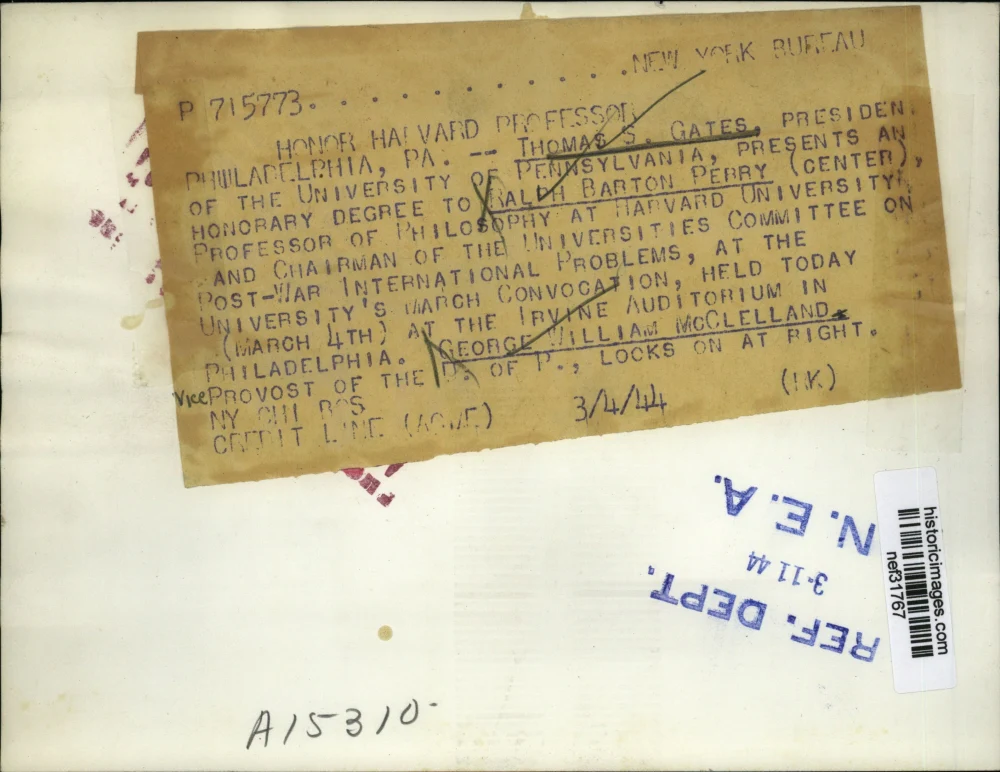 P 715773. . . . . . . . . . . .NEW YORK BUREAU
HONOR HARVARD PROFESSOR
PHWLADELPHIA, PA. -- THOMAS S. GATES, PRESIDEN
OF THE UNIVERSITY OF PENNSYLVANIA, PRESENTS AN
HONORARY DEGREE TO RALPH BARTON PERRY (CENTER),
PROFESSOR OF PHILOSOPHY AT HARVARD UNIVERSITY
AND CHAIRMAN OF THE UNIVERSITIES COMMITTEE ON
POST-WAR INTERNATIONAL PROBLEMS, AT THE
UNIVERSITY'S MARCH CONVOCATION, HELD TODAY
(MARCH 4TH) AT THE IRVINE AUDITORIUM IN
PHILADELPHIA. GEORGE WILLIAM McCLELLAND,
Vice PROVOST OF THE U. OF P., LOOKS ON AT RIGHT.
NY CHI BOS
CREDIT LINE (ACME) 3/4/44 (HK)
REF. DEPT.
3-11 44
N. E. A.
historicimages.com
nef31767
A15310